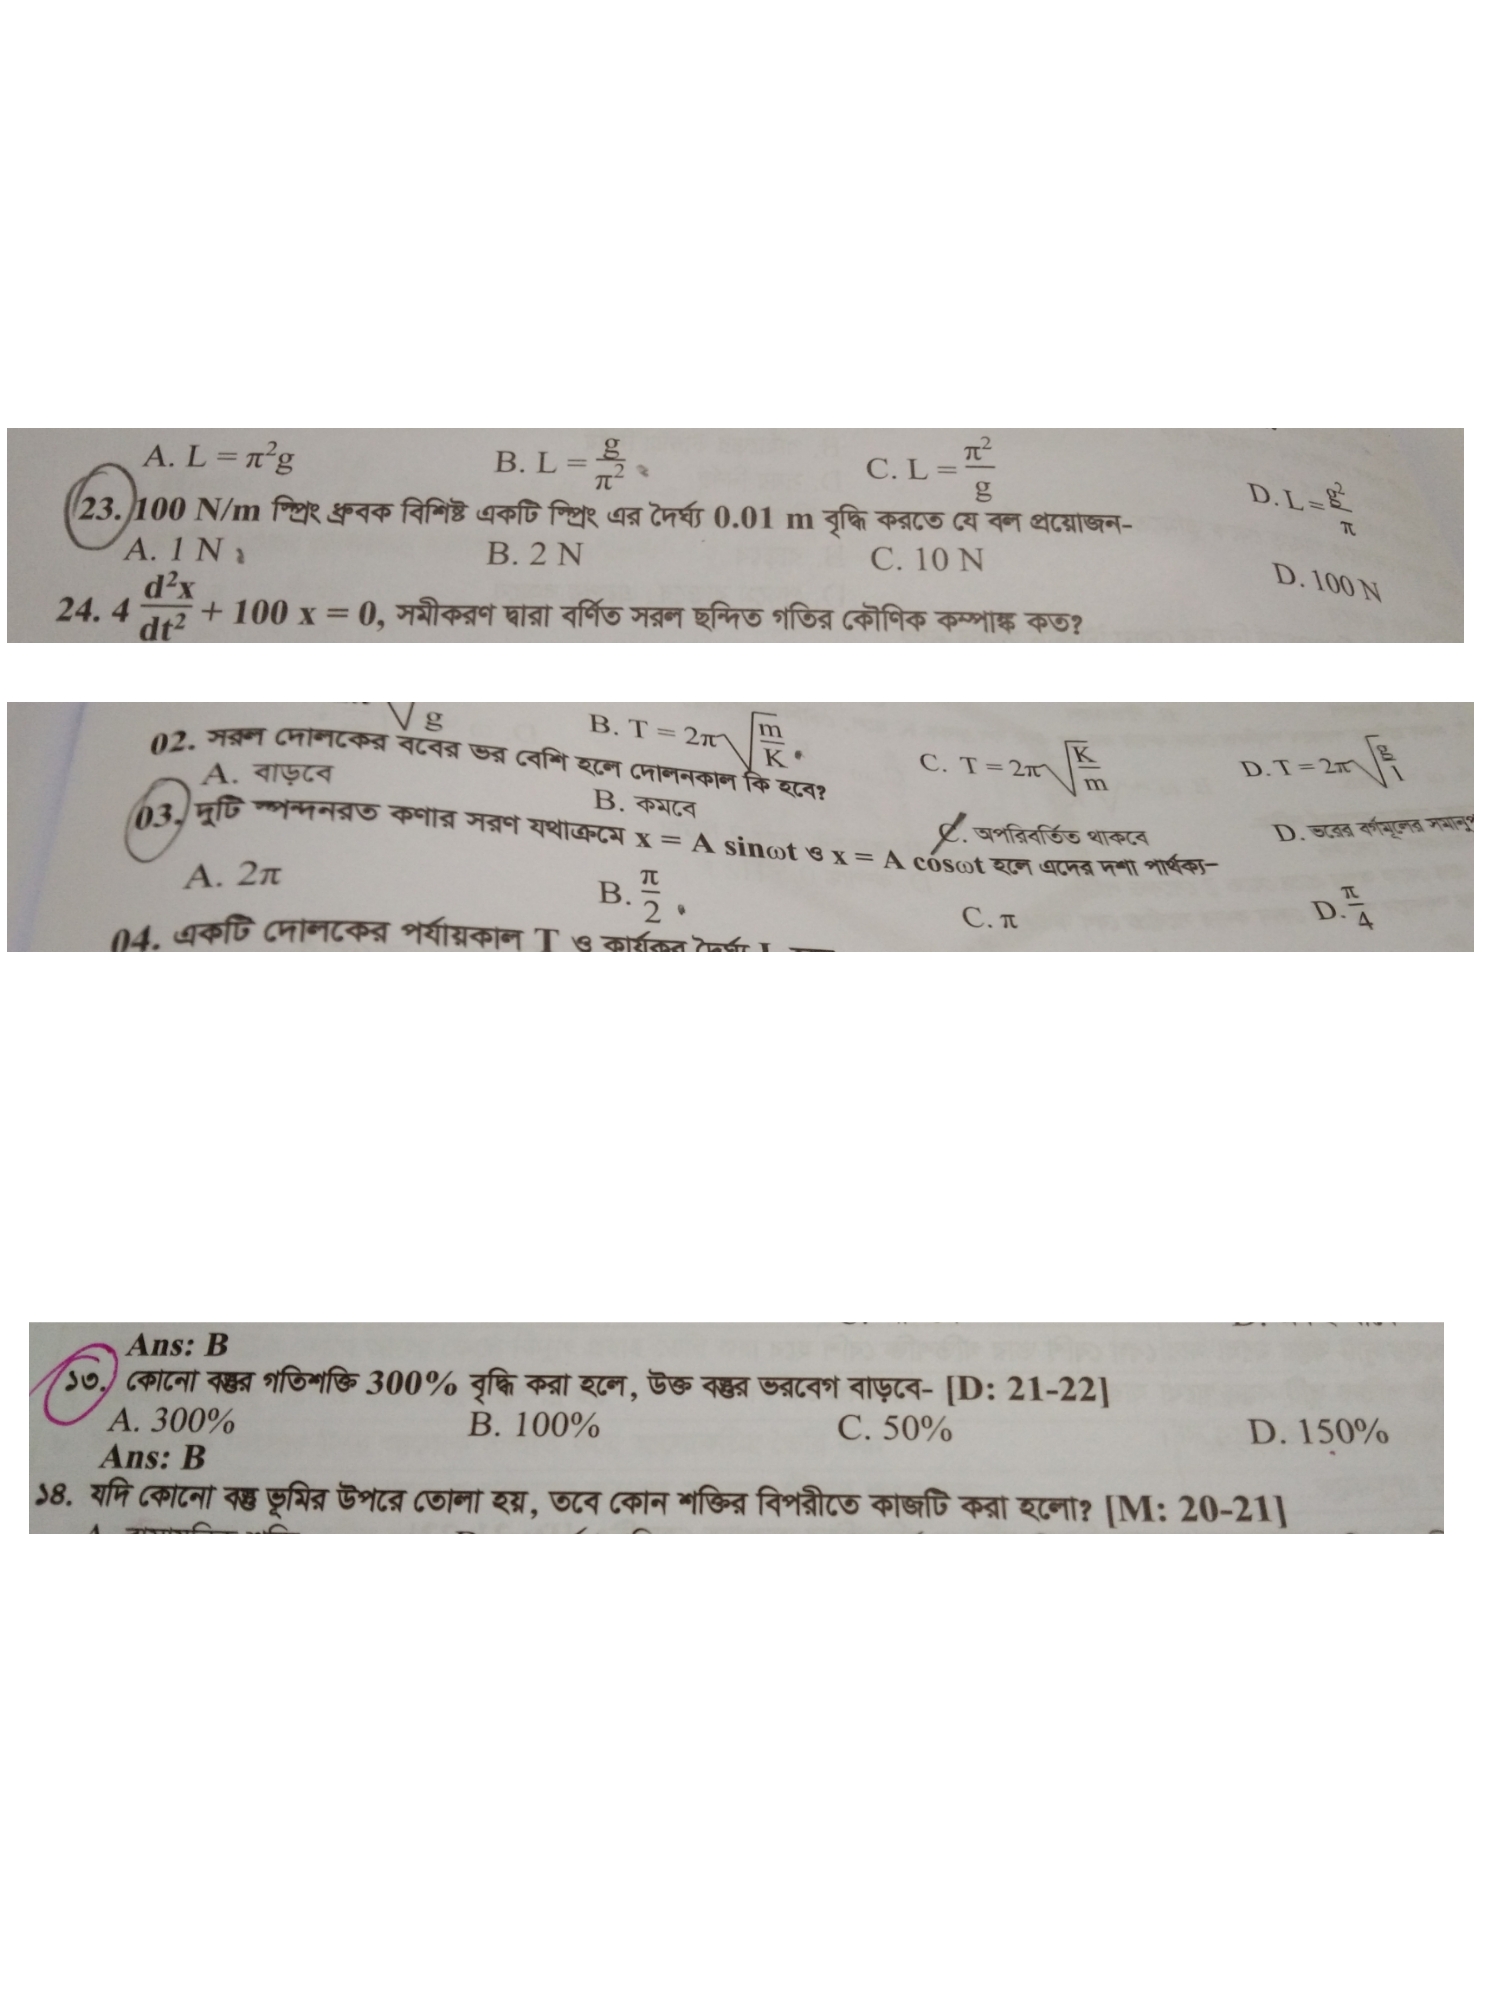 A. L = π²g B. L = g/π² C. L = π²/g D. L = g²/π
23. 100 N/m স্প্রিং ধ্রুবক বিশিষ্ট একটি স্প্রিং এর দৈর্ঘ্য 0.01 m বৃদ্ধি করতে যে বল প্রয়োজন-
A. 1 N B. 2 N C. 10 N D. 100 N
24. 4 d²x/dt² + 100 x = 0, সমীকরণ দ্বারা বর্ণিত সরল ছন্দিত গতির কৌণিক কম্পাঙ্ক কত?
√g B. T = 2π√(m/K) C. T = 2π√(K/m) D. T = 2π√(g/l)
02. সরল দোলকের ববের ভর বেশি হলে দোলনকাল কি হবে?
A. বাড়বে B. কমবে C. অপরিবর্তিত থাকবে D. ভরের বর্গমূলের
03. দুটি স্পন্দনরত কণার সরণ যথাক্রমে x = A sinωt ও x = A cosωt হলে এদের দশা পার্থক্য-
A. 2π B. π/2 C. π D. π/4
04. একটি দোলকের পর্যায়কাল T ও কার্যকর দৈর্ঘ্য L
Ans: B
১৩. কোনো বস্তুর গতিশক্তি 300% বৃদ্ধি করা হলে, উক্ত বস্তুর ভরবেগ বাড়বে- [D: 21-22]
A. 300% B. 100% C. 50% D. 150%
Ans: B
১৪. যদি কোনো বস্তু ভূমির উপরে তোলা হয়, তবে কোন শক্তির বিপরীতে কাজটি করা হলো? [M: 20-21]